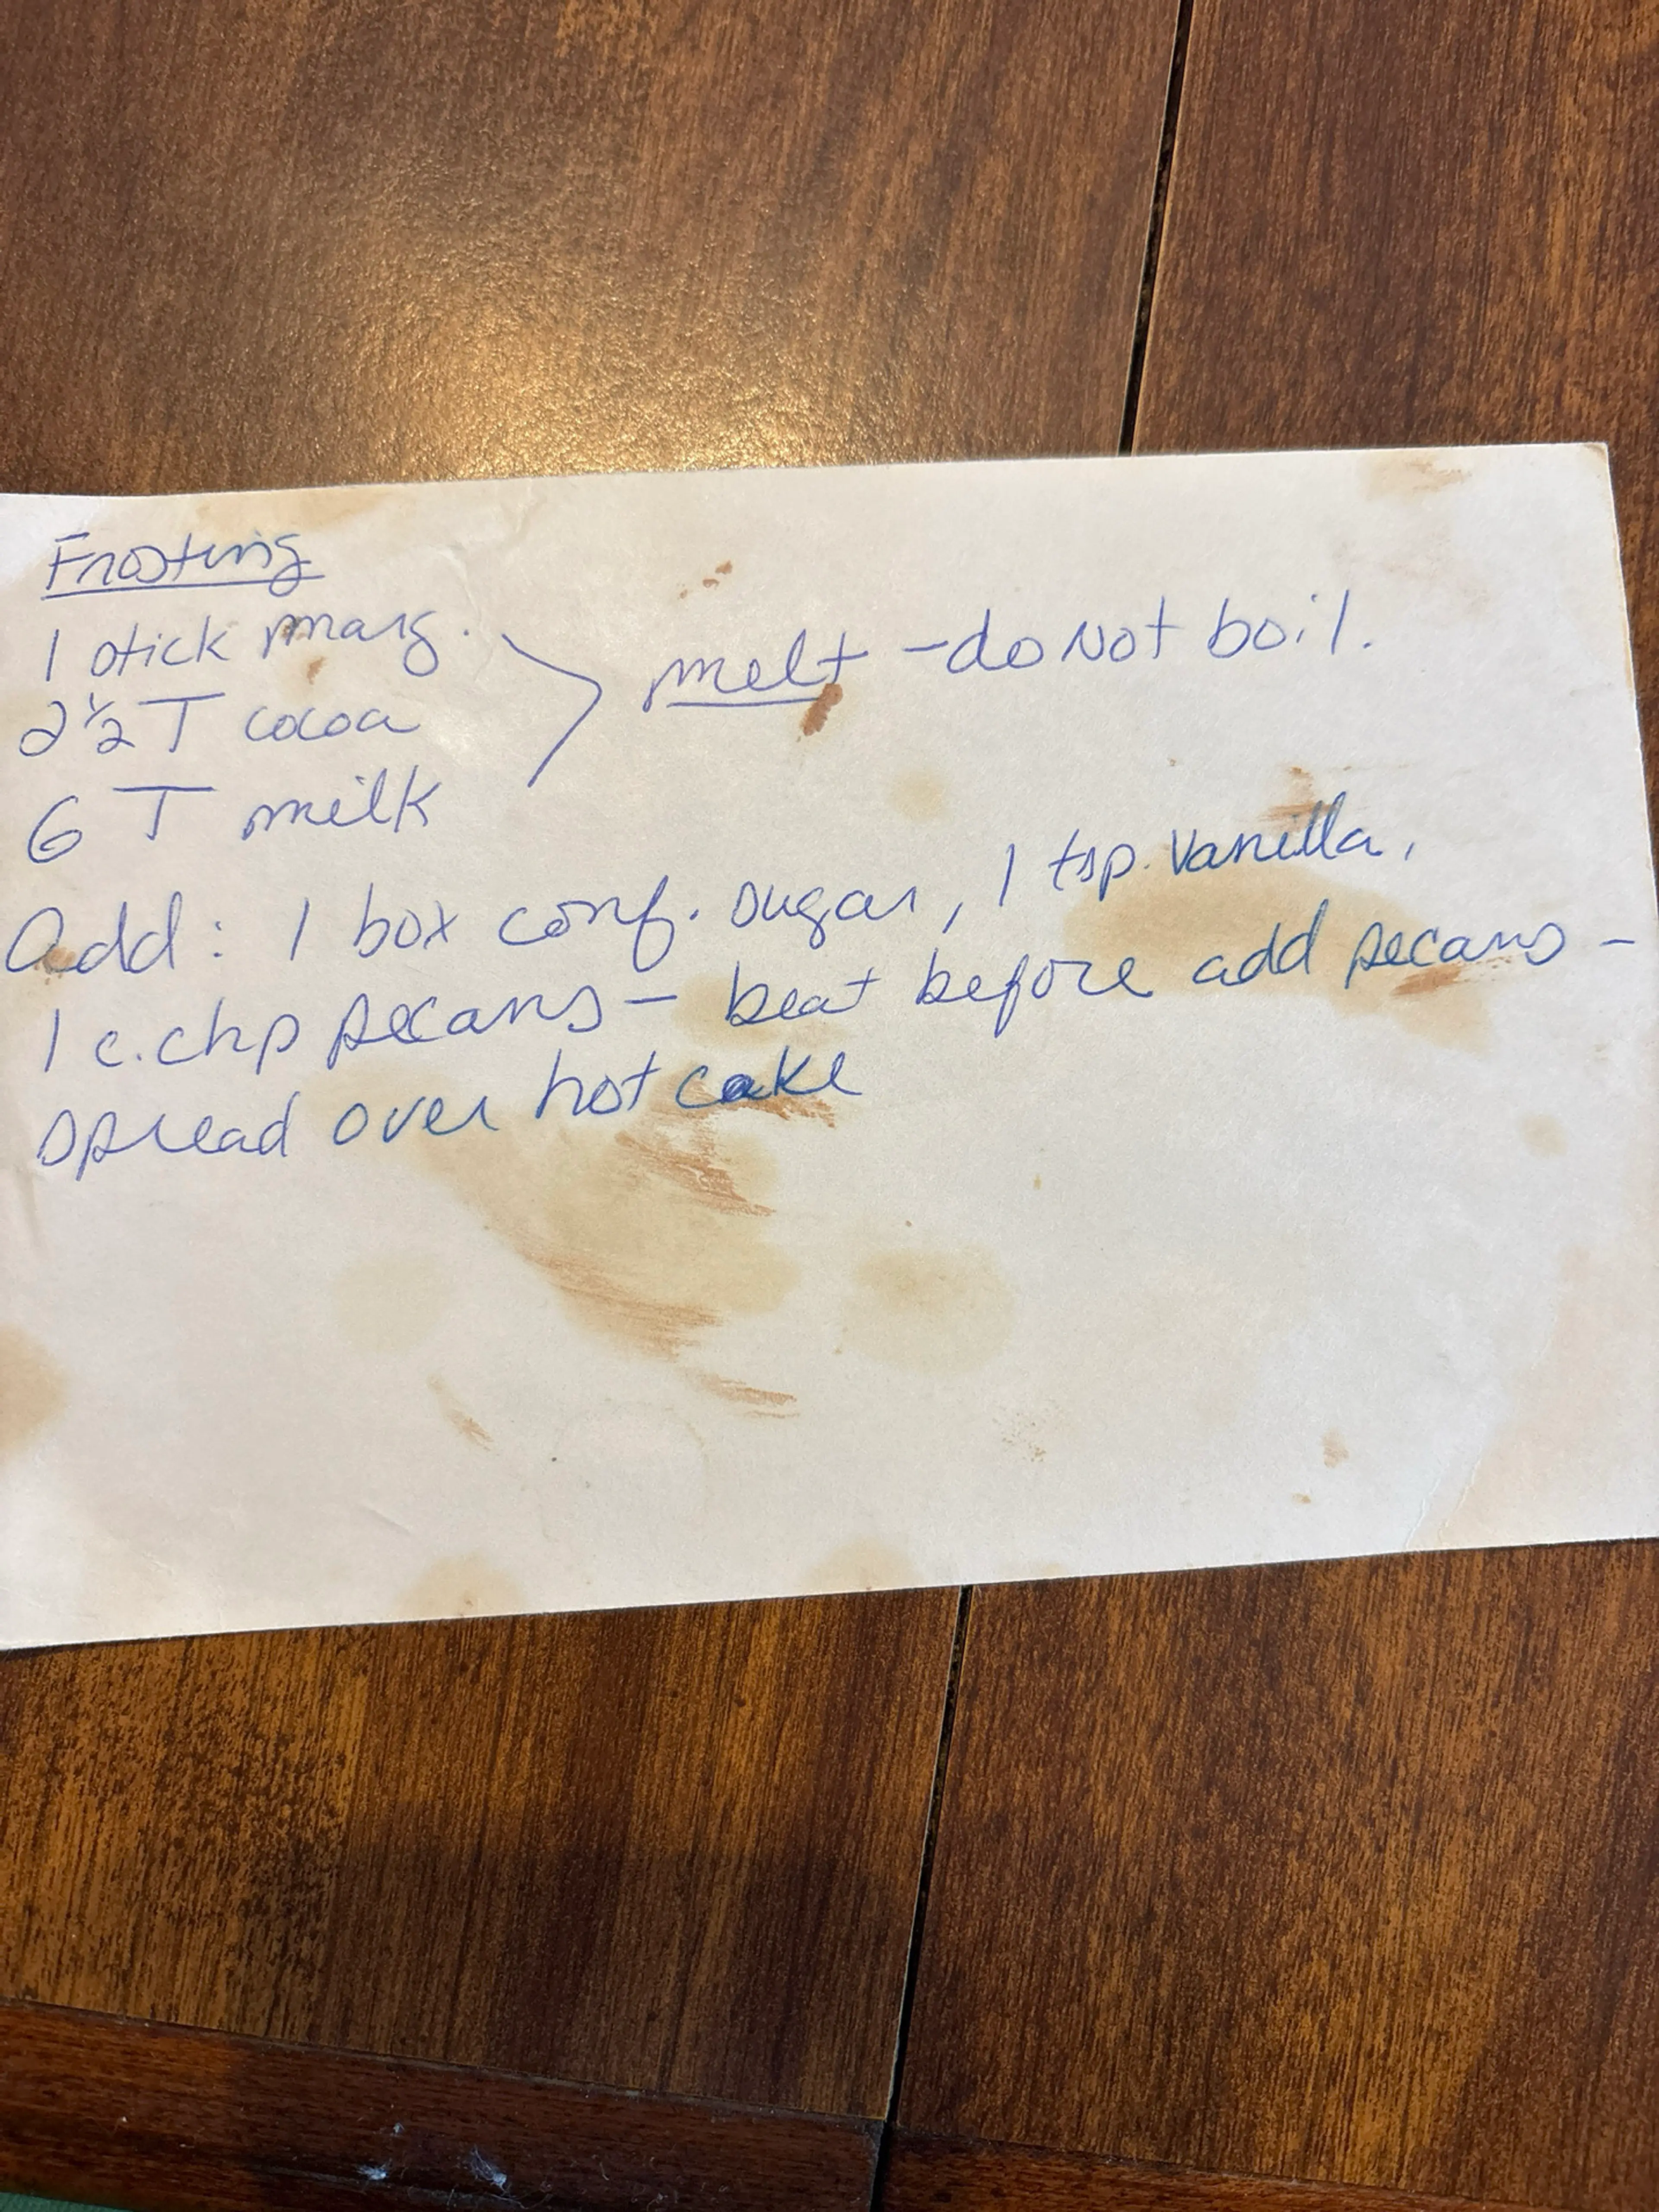 Frosting
1 stick marg.
2 1/2 T cocoa
6 T milk
melt - do Not boil.
Add: 1 box conf. sugar, 1 tsp. Vanilla,
1 c. chp pecans - beat before add pecans -
spread over hot cake